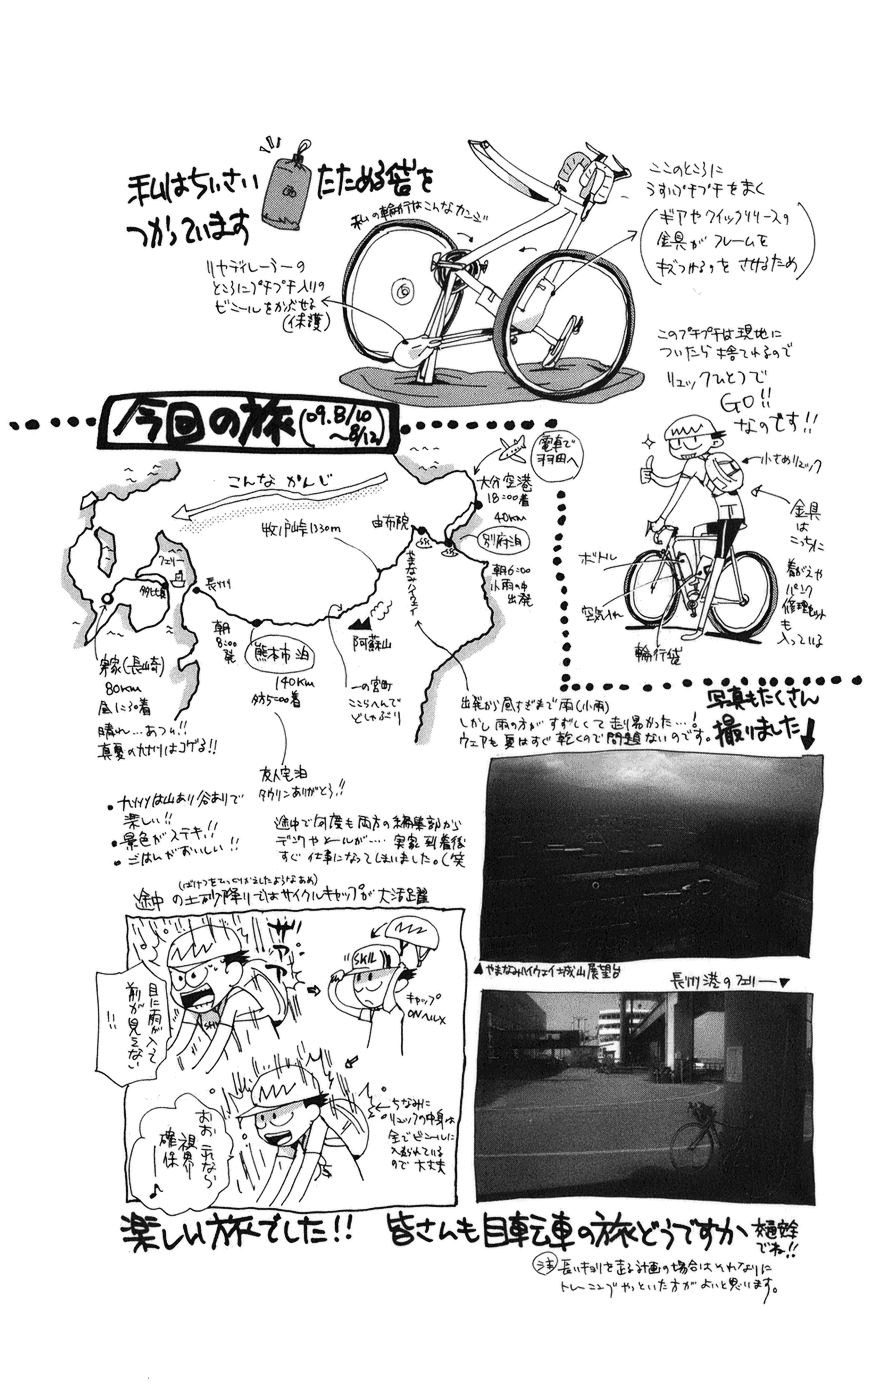 私はちいさい
たためる袋を
つかっています
私の輪行はこんなカンジ
リヤディレーラーの
ところにプチプチ入りの
ビニールをかぶせる
(保護)
ここのところに
うすいプチプチをまく
(ギアやクイックリリースの
金具がフレームを
キズつけるのをさせるため)
このプチプチは現地に
ついたら捨てれるので
リュックひとつで
GO!!
なのです!!
小さめリュック
金具
は
こっちに
着がえや
パンク
修理セット
も
入っている
ボトル
空気入れ
輪行袋
今回の旅(09.8/10
~8/12)
こんなかんじ
電車で
羽田へ
大分空港
18:00着
40km
別府泊
朝6:00
小雨の中
出発
由布院
やまなみハイウェイ
牧ノ戸峠1330m
阿蘇山
一の宮町
ここらへんで
どしゃぶり
熊本市泊
140km
夕方5:00着
友人宅泊
タウリンありがとう!!
朝
8:00
発
長洲
フェリー
多比良
実家(長崎)
80km
昼に着
晴れ…あつい!!
真夏の九州はコゲる!!
出発から昼すぎまで雨(小雨)
しかし雨の方がすずしくて走り易かった…!
ウェアも夏はすぐ乾くので問題ないのです。
写真もたくさん
撮りました
・九州は山あり谷ありで
楽しい!!
・景色がステキ!!
・ごはんがおいしい!!
途中で何度も両方の編集部から
デンワやメールが……実家到着後
すぐ仕事になってしまいました。(笑
(ばけつをひっくりかえしたようなあめ)
途中の土砂降りではサイクルキャップが大活躍
ザアアア
目に雨が入って
前が見えない
!!
SKIL
キャップ
ONヘルメ
おおこれなら
視界
確保
♪
ちなみに
リュックの中身は
全てビニールに
入れられている
ので大丈夫
▲やまなみハイウェイ城山展望台
長洲港のフェリー▼
楽しい旅でした!!
皆さんも自転車の旅どうですか
交通安全
でね!!
注 長いキョリを走る計画の場合はそれなりに
トレーニングやっといた方がよいと思います。